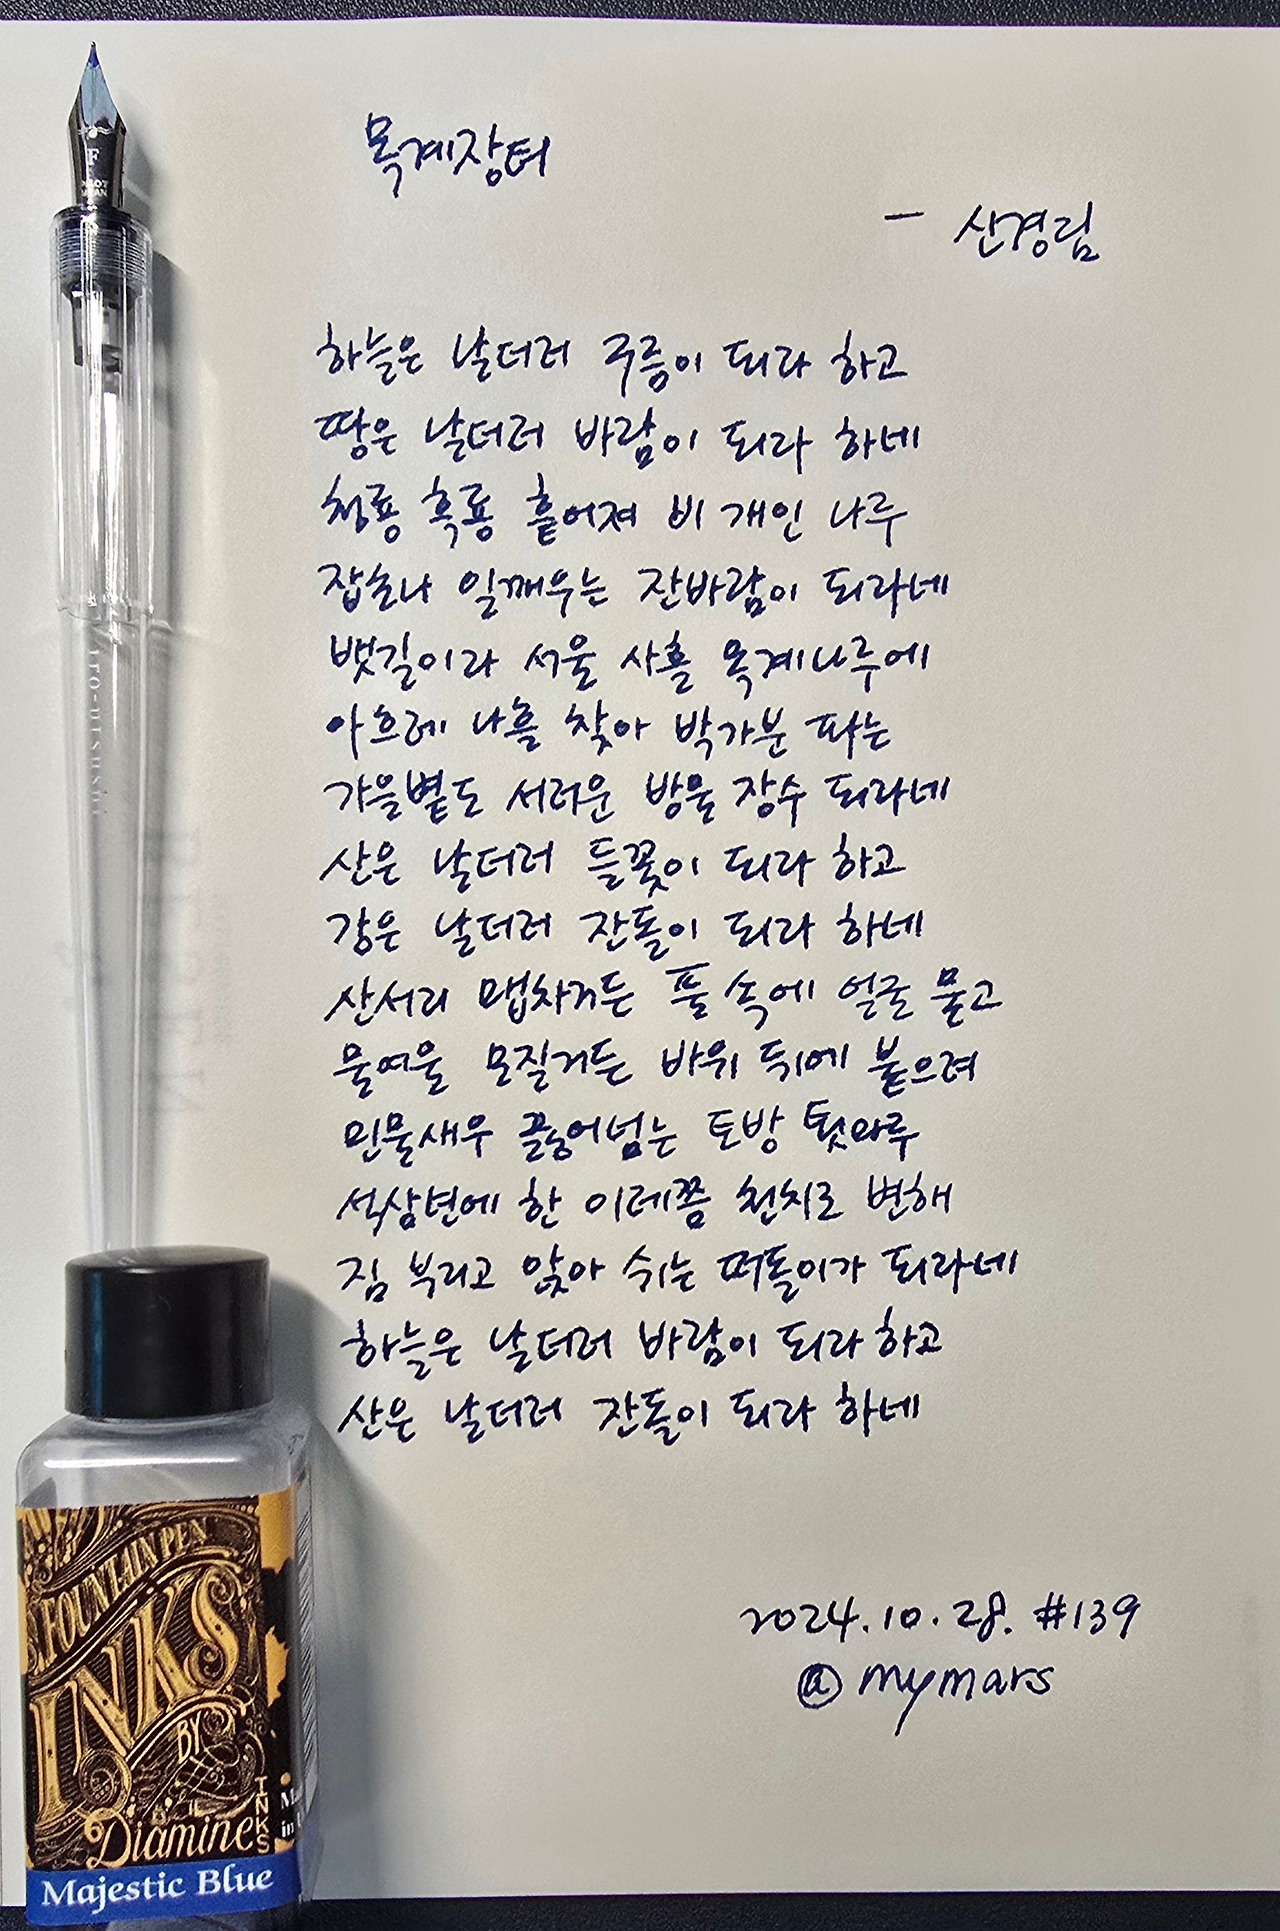 F
PILOT
JAPAN
목계장터
- 신경림
하늘은 날더러 구름이 되라 하고
땅은 날더러 바람이 되라 하네
청룡 흑룡 흩어져 비 개인 나루
잡초나 일깨우는 잔바람이 되라네
뱃길이라 서울 사흘 목계나루에
아흐레 나흘 찾아 박가분 파는
가을볕도 서러운 방물 장수 되라네
산은 날더러 들꽃이 되라 하고
강은 날더러 잔돌이 되라 하네
산서리 맵차거든 풀 속에 얼굴 묻고
물여울 모질거든 바위 뒤에 붙으려
민물새우 끓어넘는 토방 툇마루
석삼년에 한 이레쯤 천치로 변해
짐 부리고 앉아 쉬는 떠돌이가 되라네
하늘은 날더러 바람이 되라 하고
산은 날더러 잔돌이 되라 하네
2024.10.28. #139
@mymars
FOUNTAIN PEN
INKS
BY
Diamine
INKS
Majestic Blue